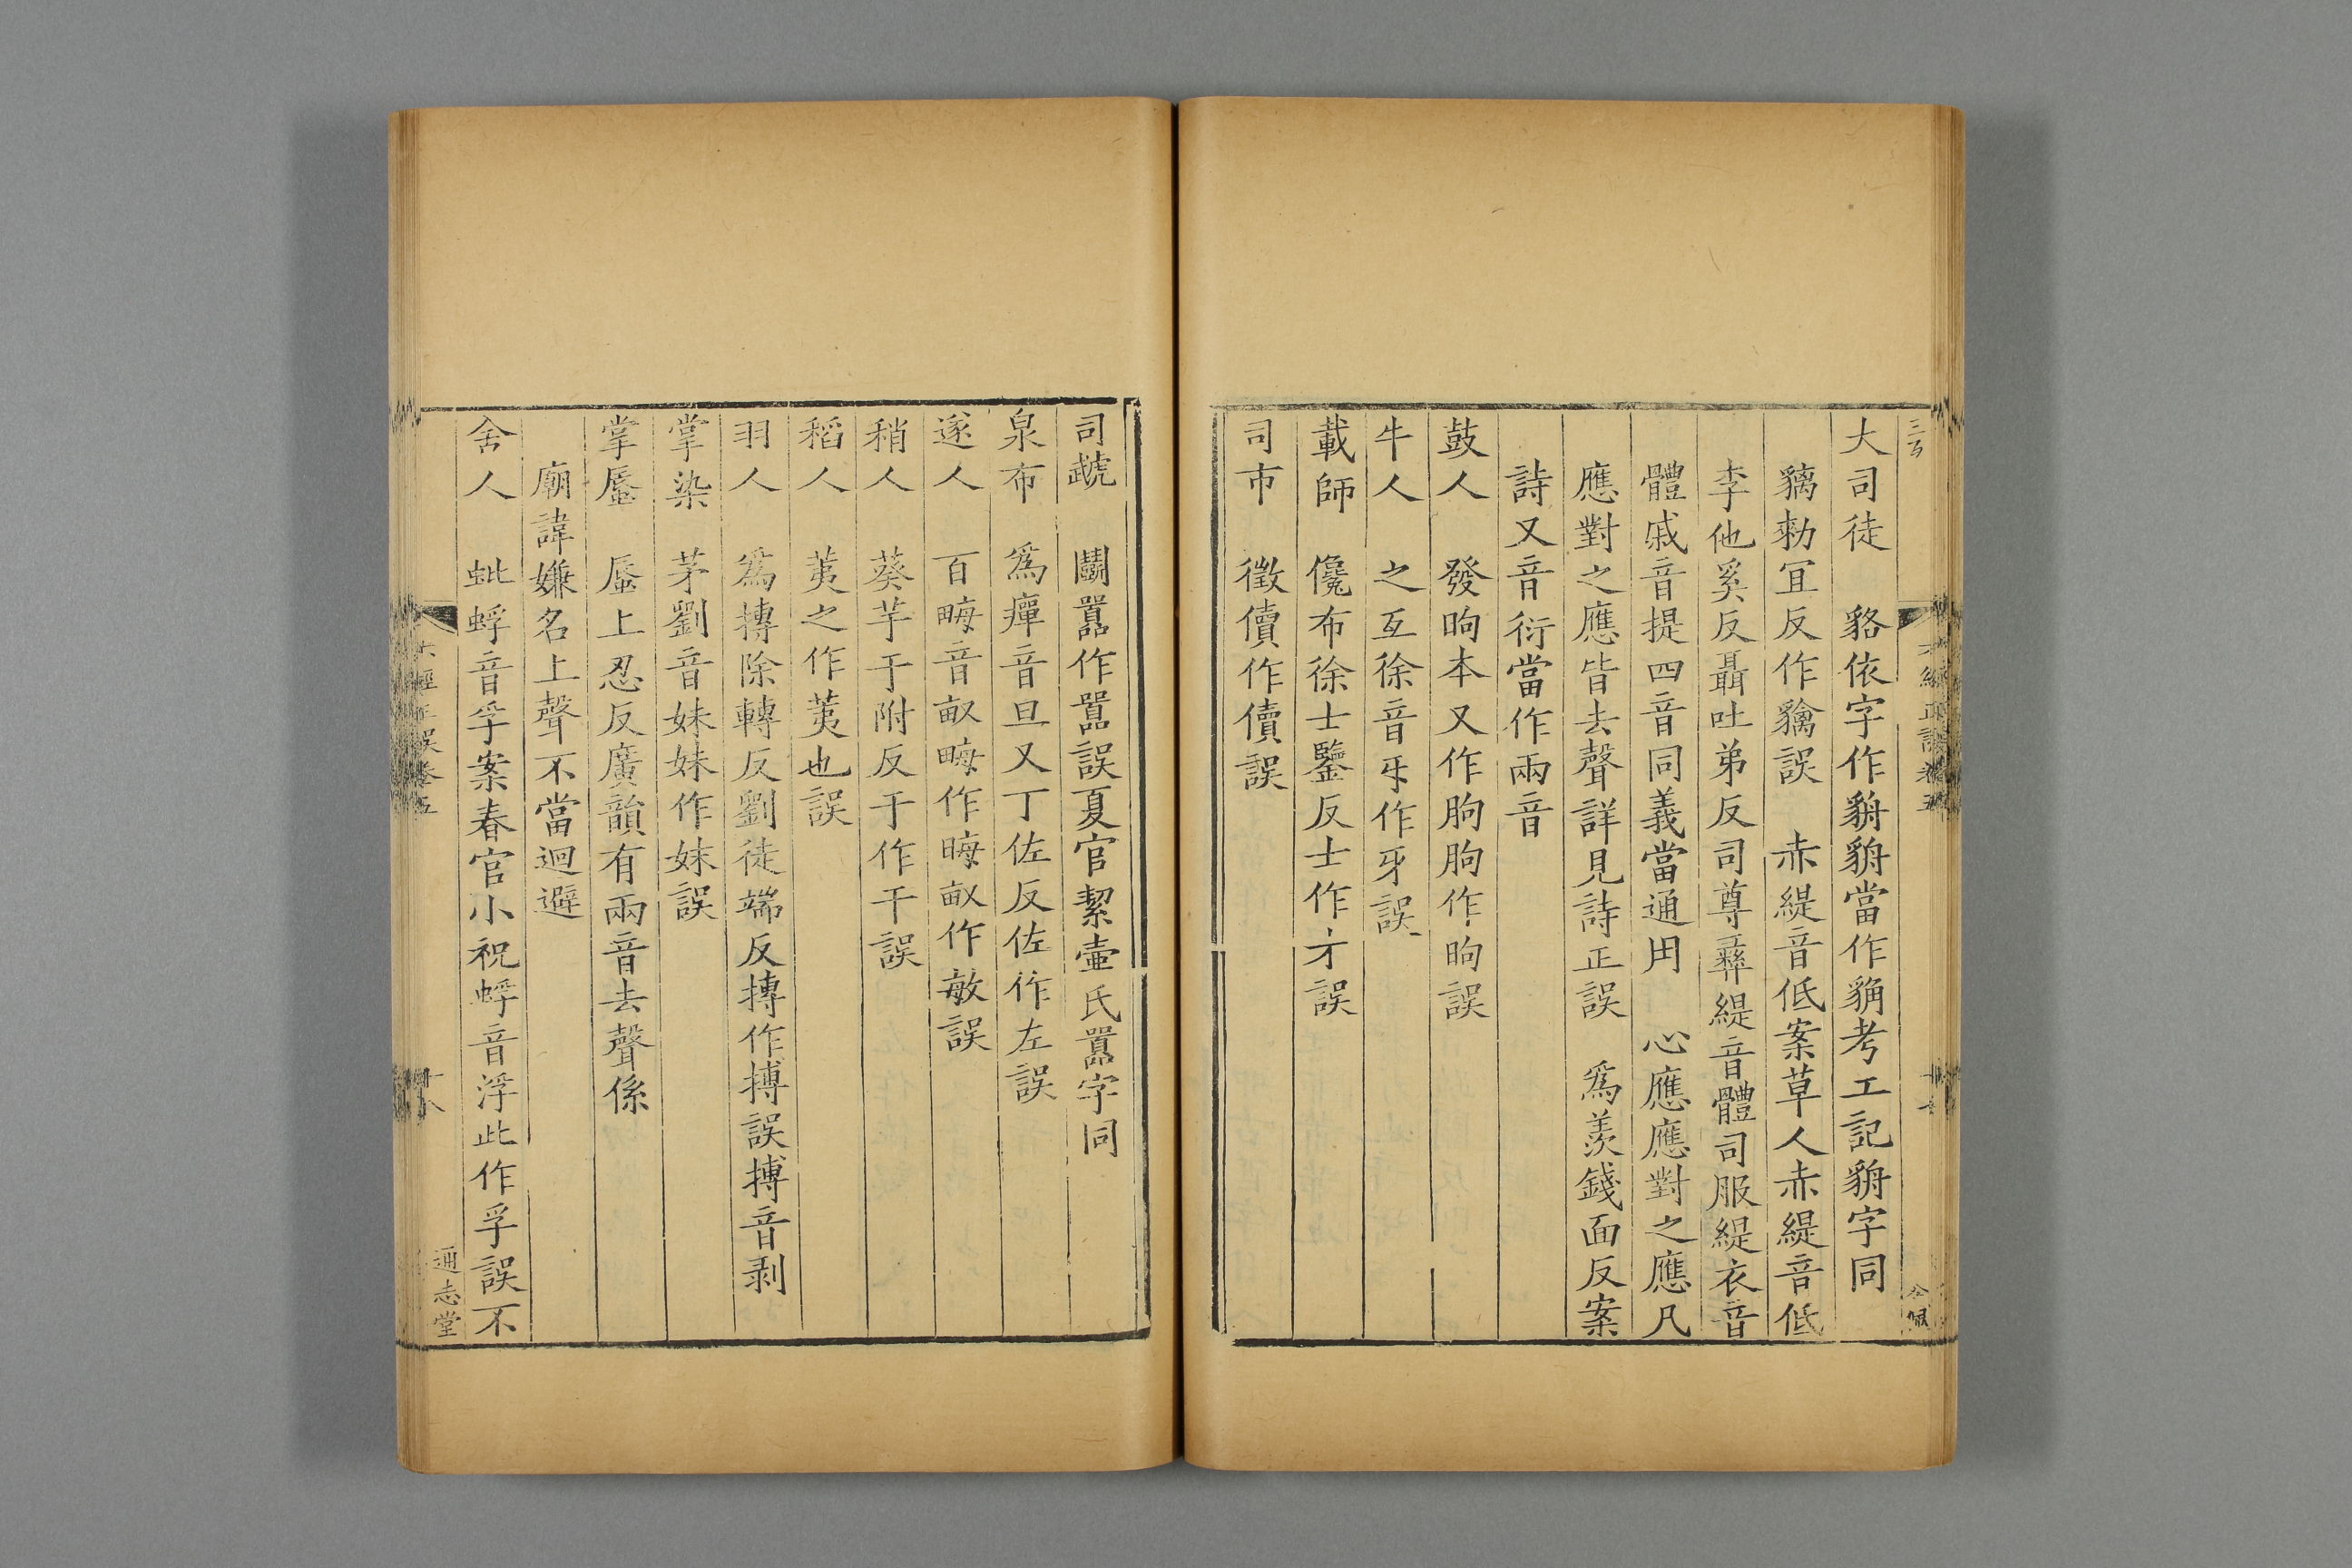 大司徒 貉依字作貈貈當作貊考工記貈字同
貓勑宜反作貓誤 赤緹音低案草人赤緹音低
李他奚反聶吐弟反司尊彝緹音體司服緹衣音
體戚音提四音同義當通用 心應應對之應凡
應對之應皆去聲詳見詩正誤 爲羨錢面反案
詩又音衍當作兩音
鼓人 發昫本又作朐朐作昫誤
牛人 之互徐音牙作牙誤
載師 儳布徐士鑒反士作才誤
司市 徵儥作儥誤
司虣 鬭嚻作嚻誤夏官絜壷氏嚻字同
泉布 爲癉音旦又丁佐反佐作左誤
遂人 百畮音畝畮作晦畝作敏誤
稍人 葵芋于附反于作干誤
稻人 荑之作荑也誤
羽人 爲摶除轉反劉徒端反摶作搏誤搏音剥
掌染 茅劉音妹妹作妺誤
掌蜃 蜃上忍反廣韻有兩音去聲係
廟諱嫌名上聲不當迴避
舍人 蚍蜉音孚案春官小祝蜉音浮此作孚誤不
六經正誤卷五
十八
通志堂